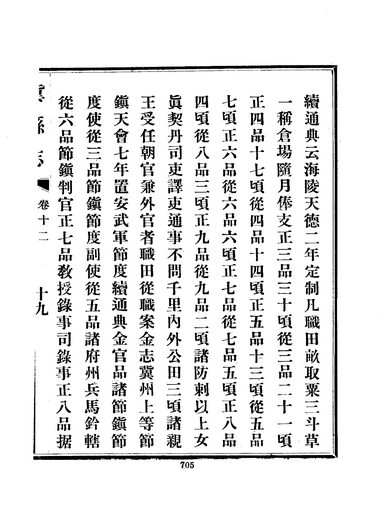 續通典云海陵天德二年定制凡職田畝取粟三斗草
一稱倉場隨月俸支正三品三十頃從三品二十一頃
正四品十七頃從四品十四頃正五品十三頃從五品
七頃正六品從六品六頃正七品從七品五頃正八品
四頃從八品三頃正九品從九品二頃諸防刺以上女
眞契丹司吏譯吏通事不問千里內外公田三頃諸親
王受任朝官兼外官者職田從職案金志冀州上等節
鎭天會七年置安武軍節度續通典金官品諸節鎭節
度使從三品節鎭節度副使從五品諸府州兵馬鈐轄
從六品節鎭判官正七品敎授錄事司錄事正八品据
冀縣志
卷十二
十九
705